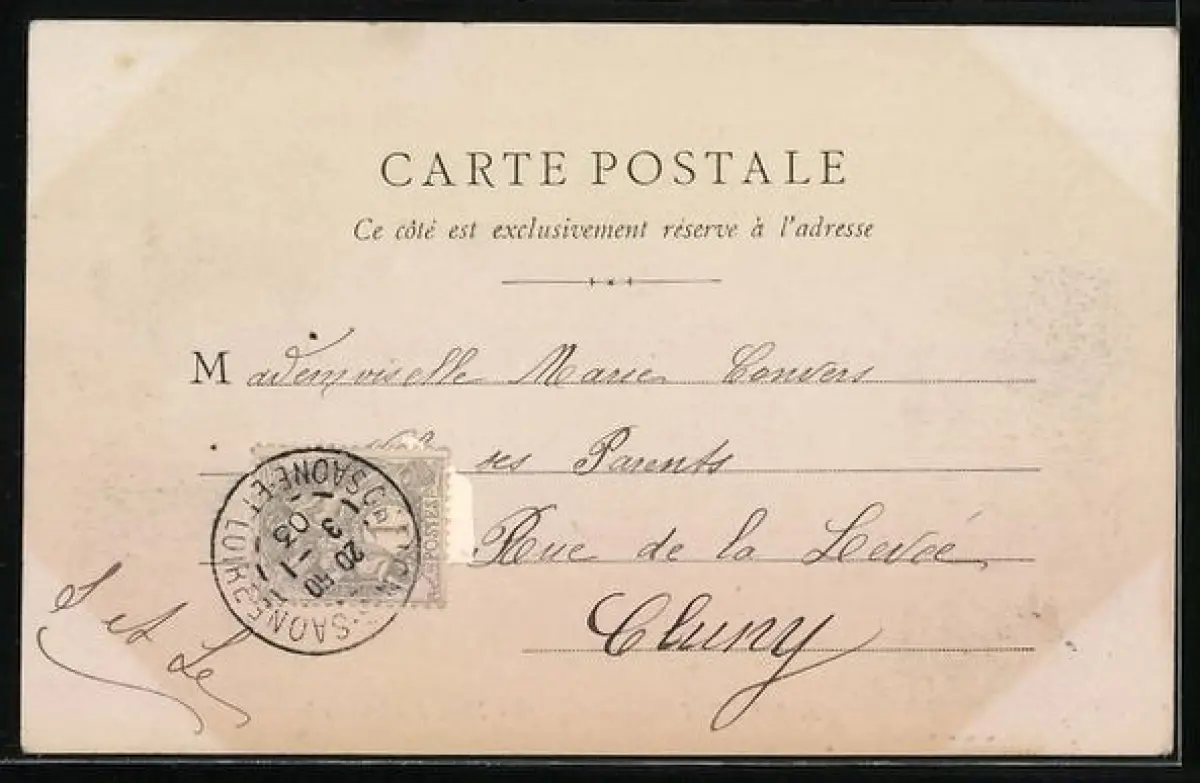 CARTE POSTALE
Ce côté est exclusivement réservé à l'adresse
Mademoiselle Marie Convers
ses Parents
Rue de la Levée
Cluny
S et Le
POSTES
SAONE-ET-LOIRE
20
3
03